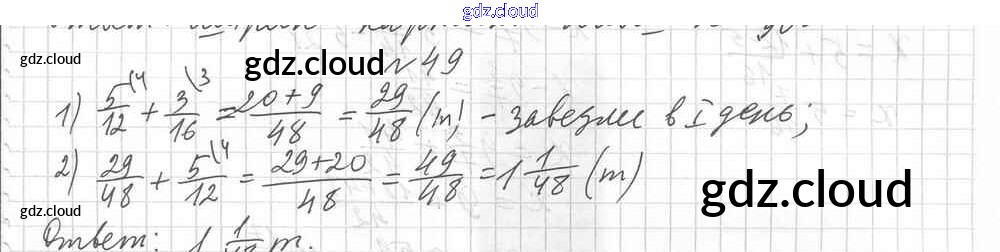 gdz.cloud
gdz.cloud gdz.cloud N 49
1) 5/12 \4 + 3/16 \3 = 20+9/48 = 29/48 (т) - завезли в I день;
2) 29/48 + 5/12 \4 = 29+20/48 = 49/48 = 1 1/48 (т)
gdz.cloud
gdz.cloud gdz.cloud
Ответ: 1 1/48 т.